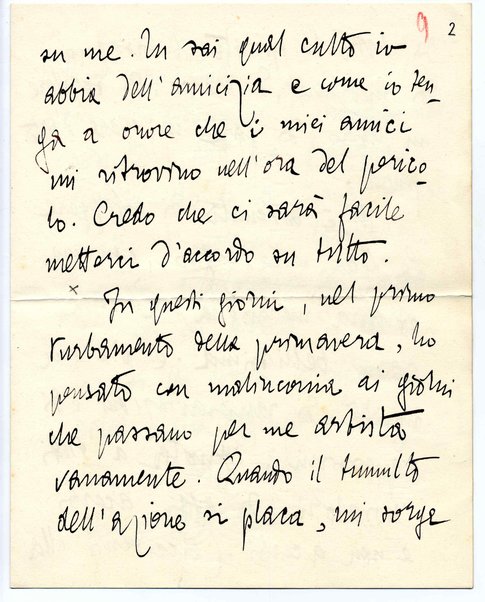 9 2
su me. Tu sai qual culto io
abbia dell'amicizia e come io ten-
ga a onore che i miei amici
mi ritrovino nell'ora del perico-
lo. Credo che ci sarà facile
metterci d'accordo su tutto.
x
In questi giorni, nel primo
turbamento della primavera, ho
pensato con malinconia ai giorni
che passano per me artista
vanamente. Quando il tumulto
dell'azione si placa, mi sorge